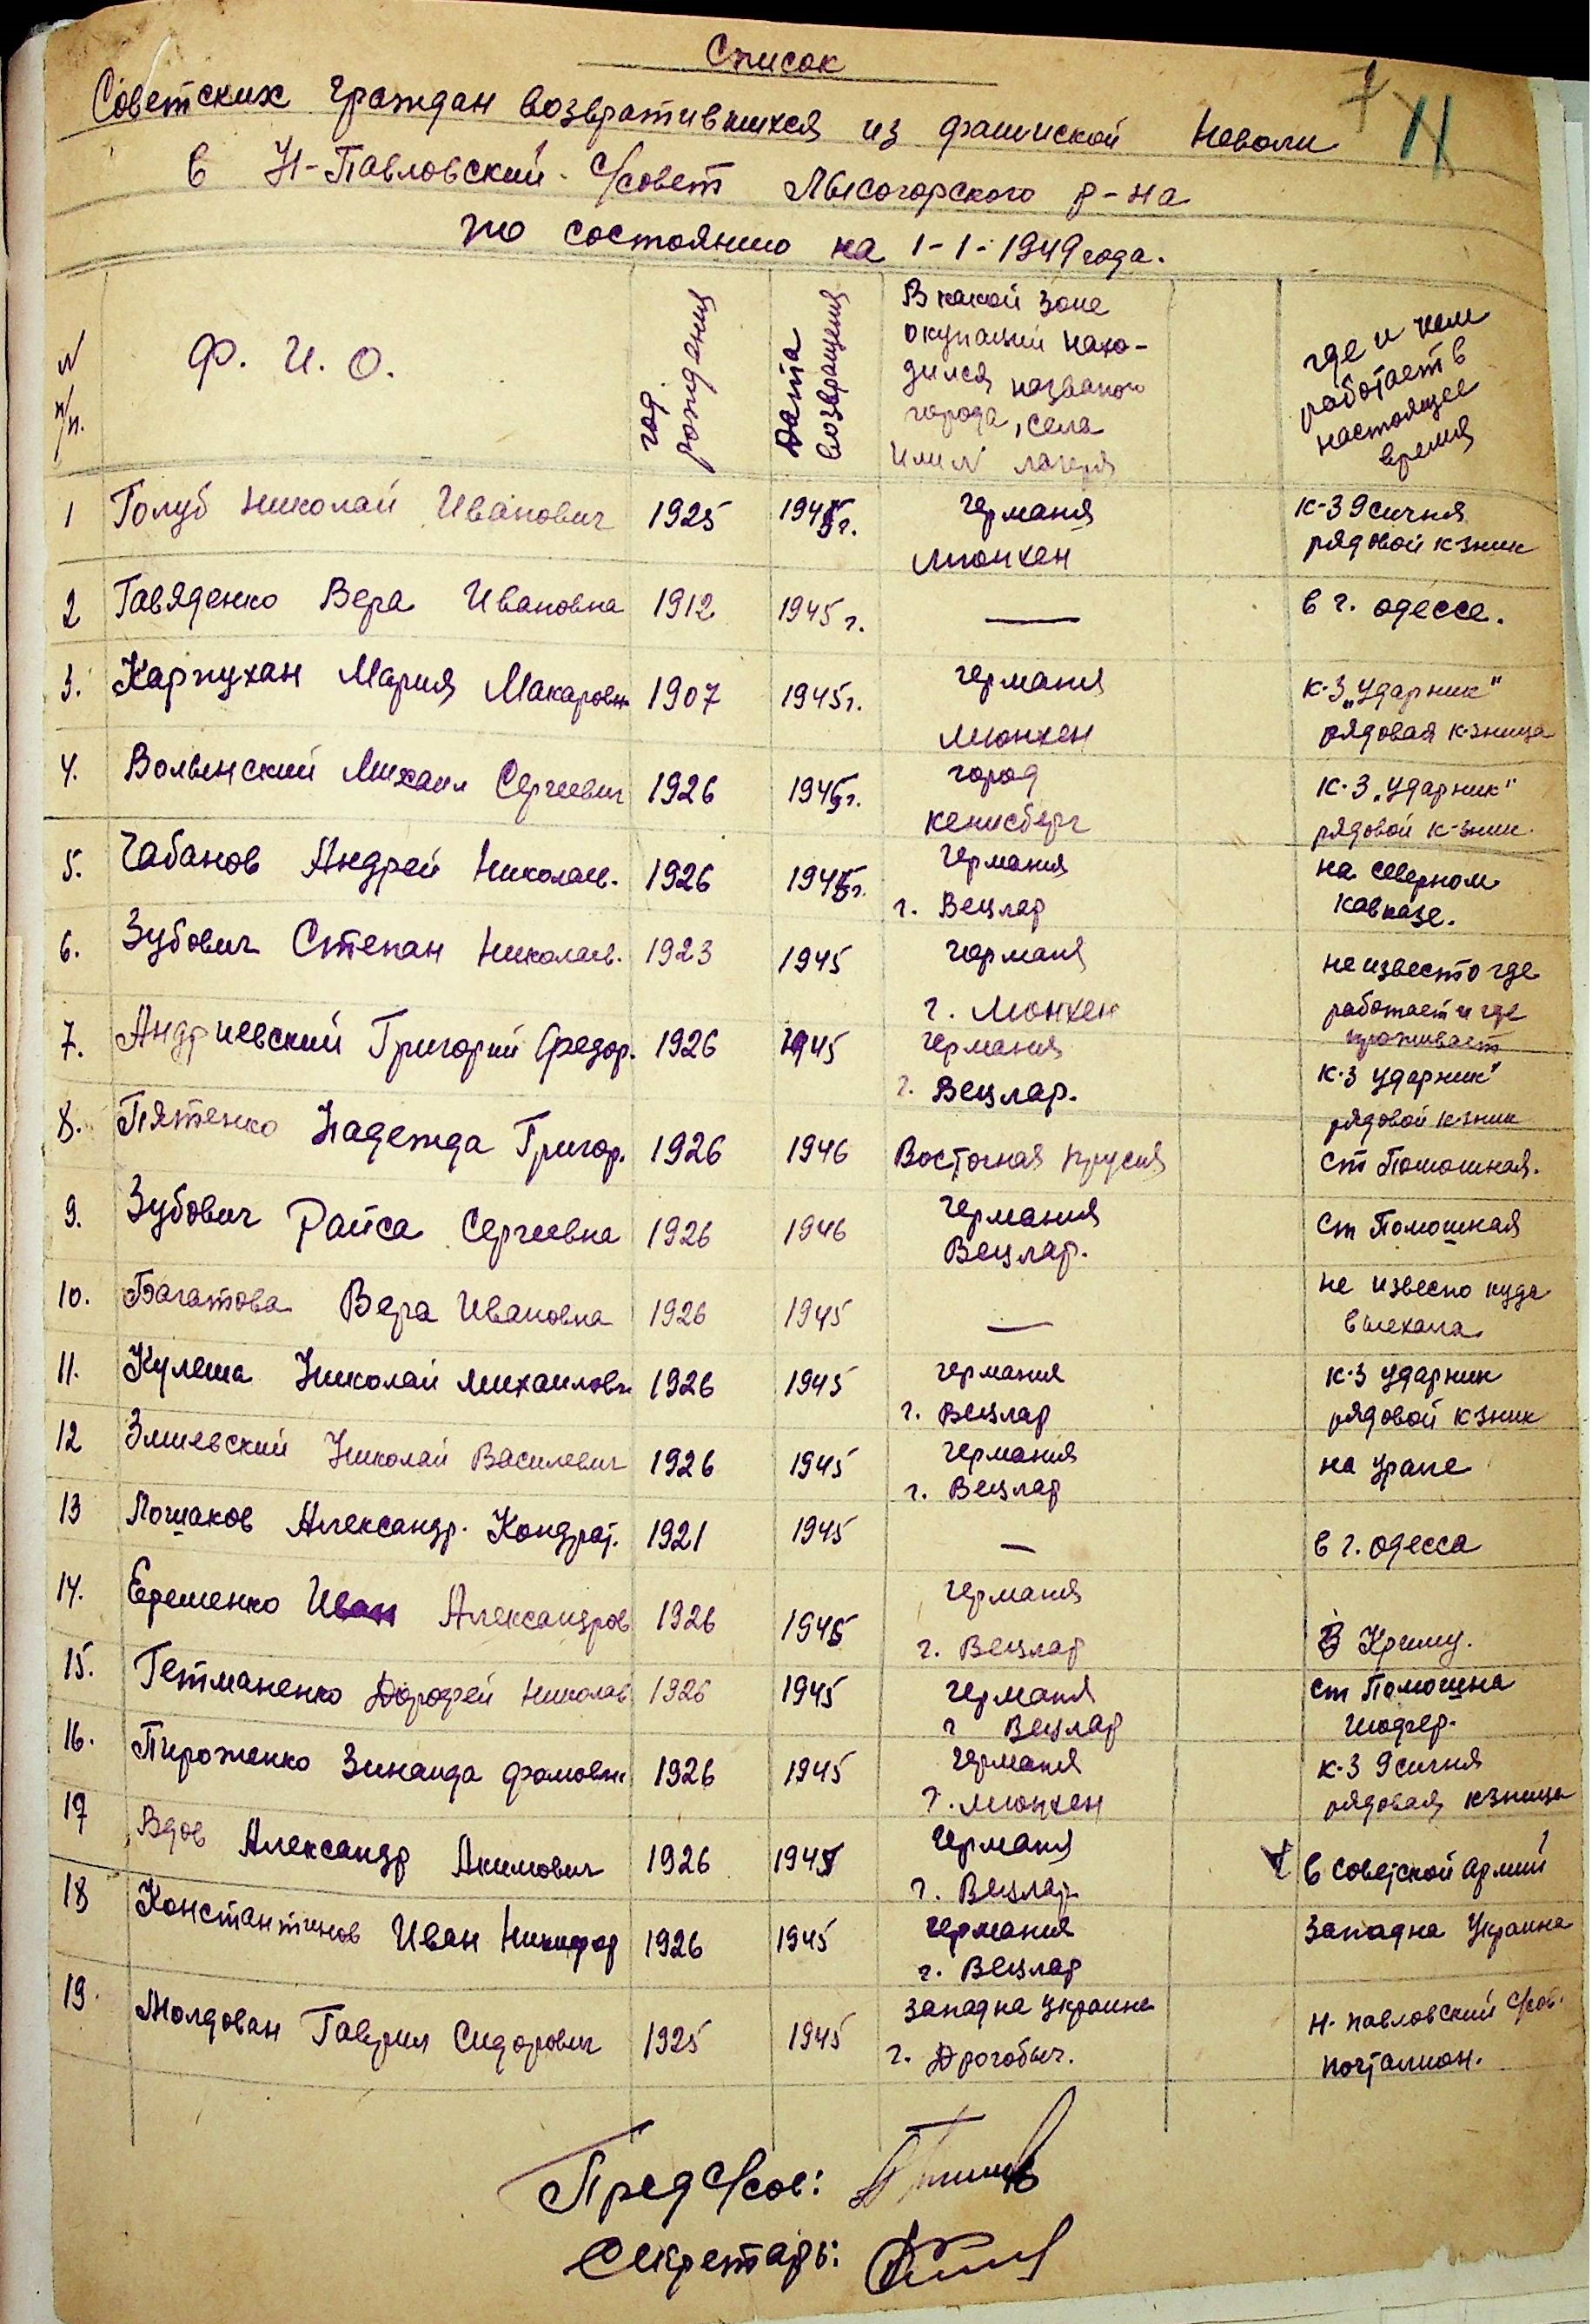 Список
Советских граждан возвратившихся из фашиской неволи
в Н-Павловский с/совет Лысогорского р-на
по состоянию на 1-1-1949 года.
N п/п.
Ф. И. О.
год рождения
Дата возвращения
В какой зоне
окупации нахо-
дился название
города, села
или N лагеря
где и кем
работает в
настоящее
время
1 Голуб Николай Иванович 1925 1945г. Германия к-з 9 сичня
Мюнхен рядовой к-зник
2 Гавяденко Вера Ивановна 1912 1945 г. — в г. Одессе.
3. Карпухан Мария Макаровн 1907 1945г. Германия к-з "Ударник"
Мюнхен рядовая к-зница
4. Волынский Михаил Сергеевич 1926 1945г. город к-з "Ударник"
Кенисберг рядовой к-зник
5. Чабанов Андрей Николаев. 1926 1945г. Германия на северном
г. Вецлар Кавказе.
6. Зубович Степан Николаев. 1923 1945 Германия неизвесто где
г. Мюнхен работает и где
проживает
7. Андриевский Григорий Федор. 1926 1945 Германия
г. Вецлар. к-з Ударник"
рядовой к-зник
8. Пятенко Надежда Григор. 1926 1946 Восточная Прусия ст Помошная.
9. Зубович Раиса Сергеевна 1926 1946 Германия ст Помошная
Вецлар.
10. Багатова Вера Ивановна 1926 1945 — не извесно куда
выехала
11. Кулеша Николай Михаилови 1926 1945 Германия к-з Ударник
г. Вецлар рядовой кзник
12 Змиевский Николай Василевич 1926 1945 Германия на Урале
г. Вецлар
13 Лошаков Александр. Кондрат. 1921 1945 — в г. Одесса
14. Еременко Иван Александров 1926 1945 Германия
г. Вецлар В Криму.
15. Гетманенко Дорофей Николав 1926 1945 Германия ст Помошна
г Вецлар шофер.
16. Пироженко Зинаида Фомовн 1926 1945 Германия к-з 9 сичня
г. Мюнхен рядовая кзница
17 Вдов Александр Акимович 1926 1945 Германия в Советской армии
г. Вецлар
18 Константинов Иван Никифор 1926 1945 Германия Западна Украина
г. Вецлар
19. Молдован Гаврил Сидорович 1925 1945 Западна Украине Н-Павловский с/сов.
г. Дрогобыч. почталион.
Пред с/сов:
Секретарь: